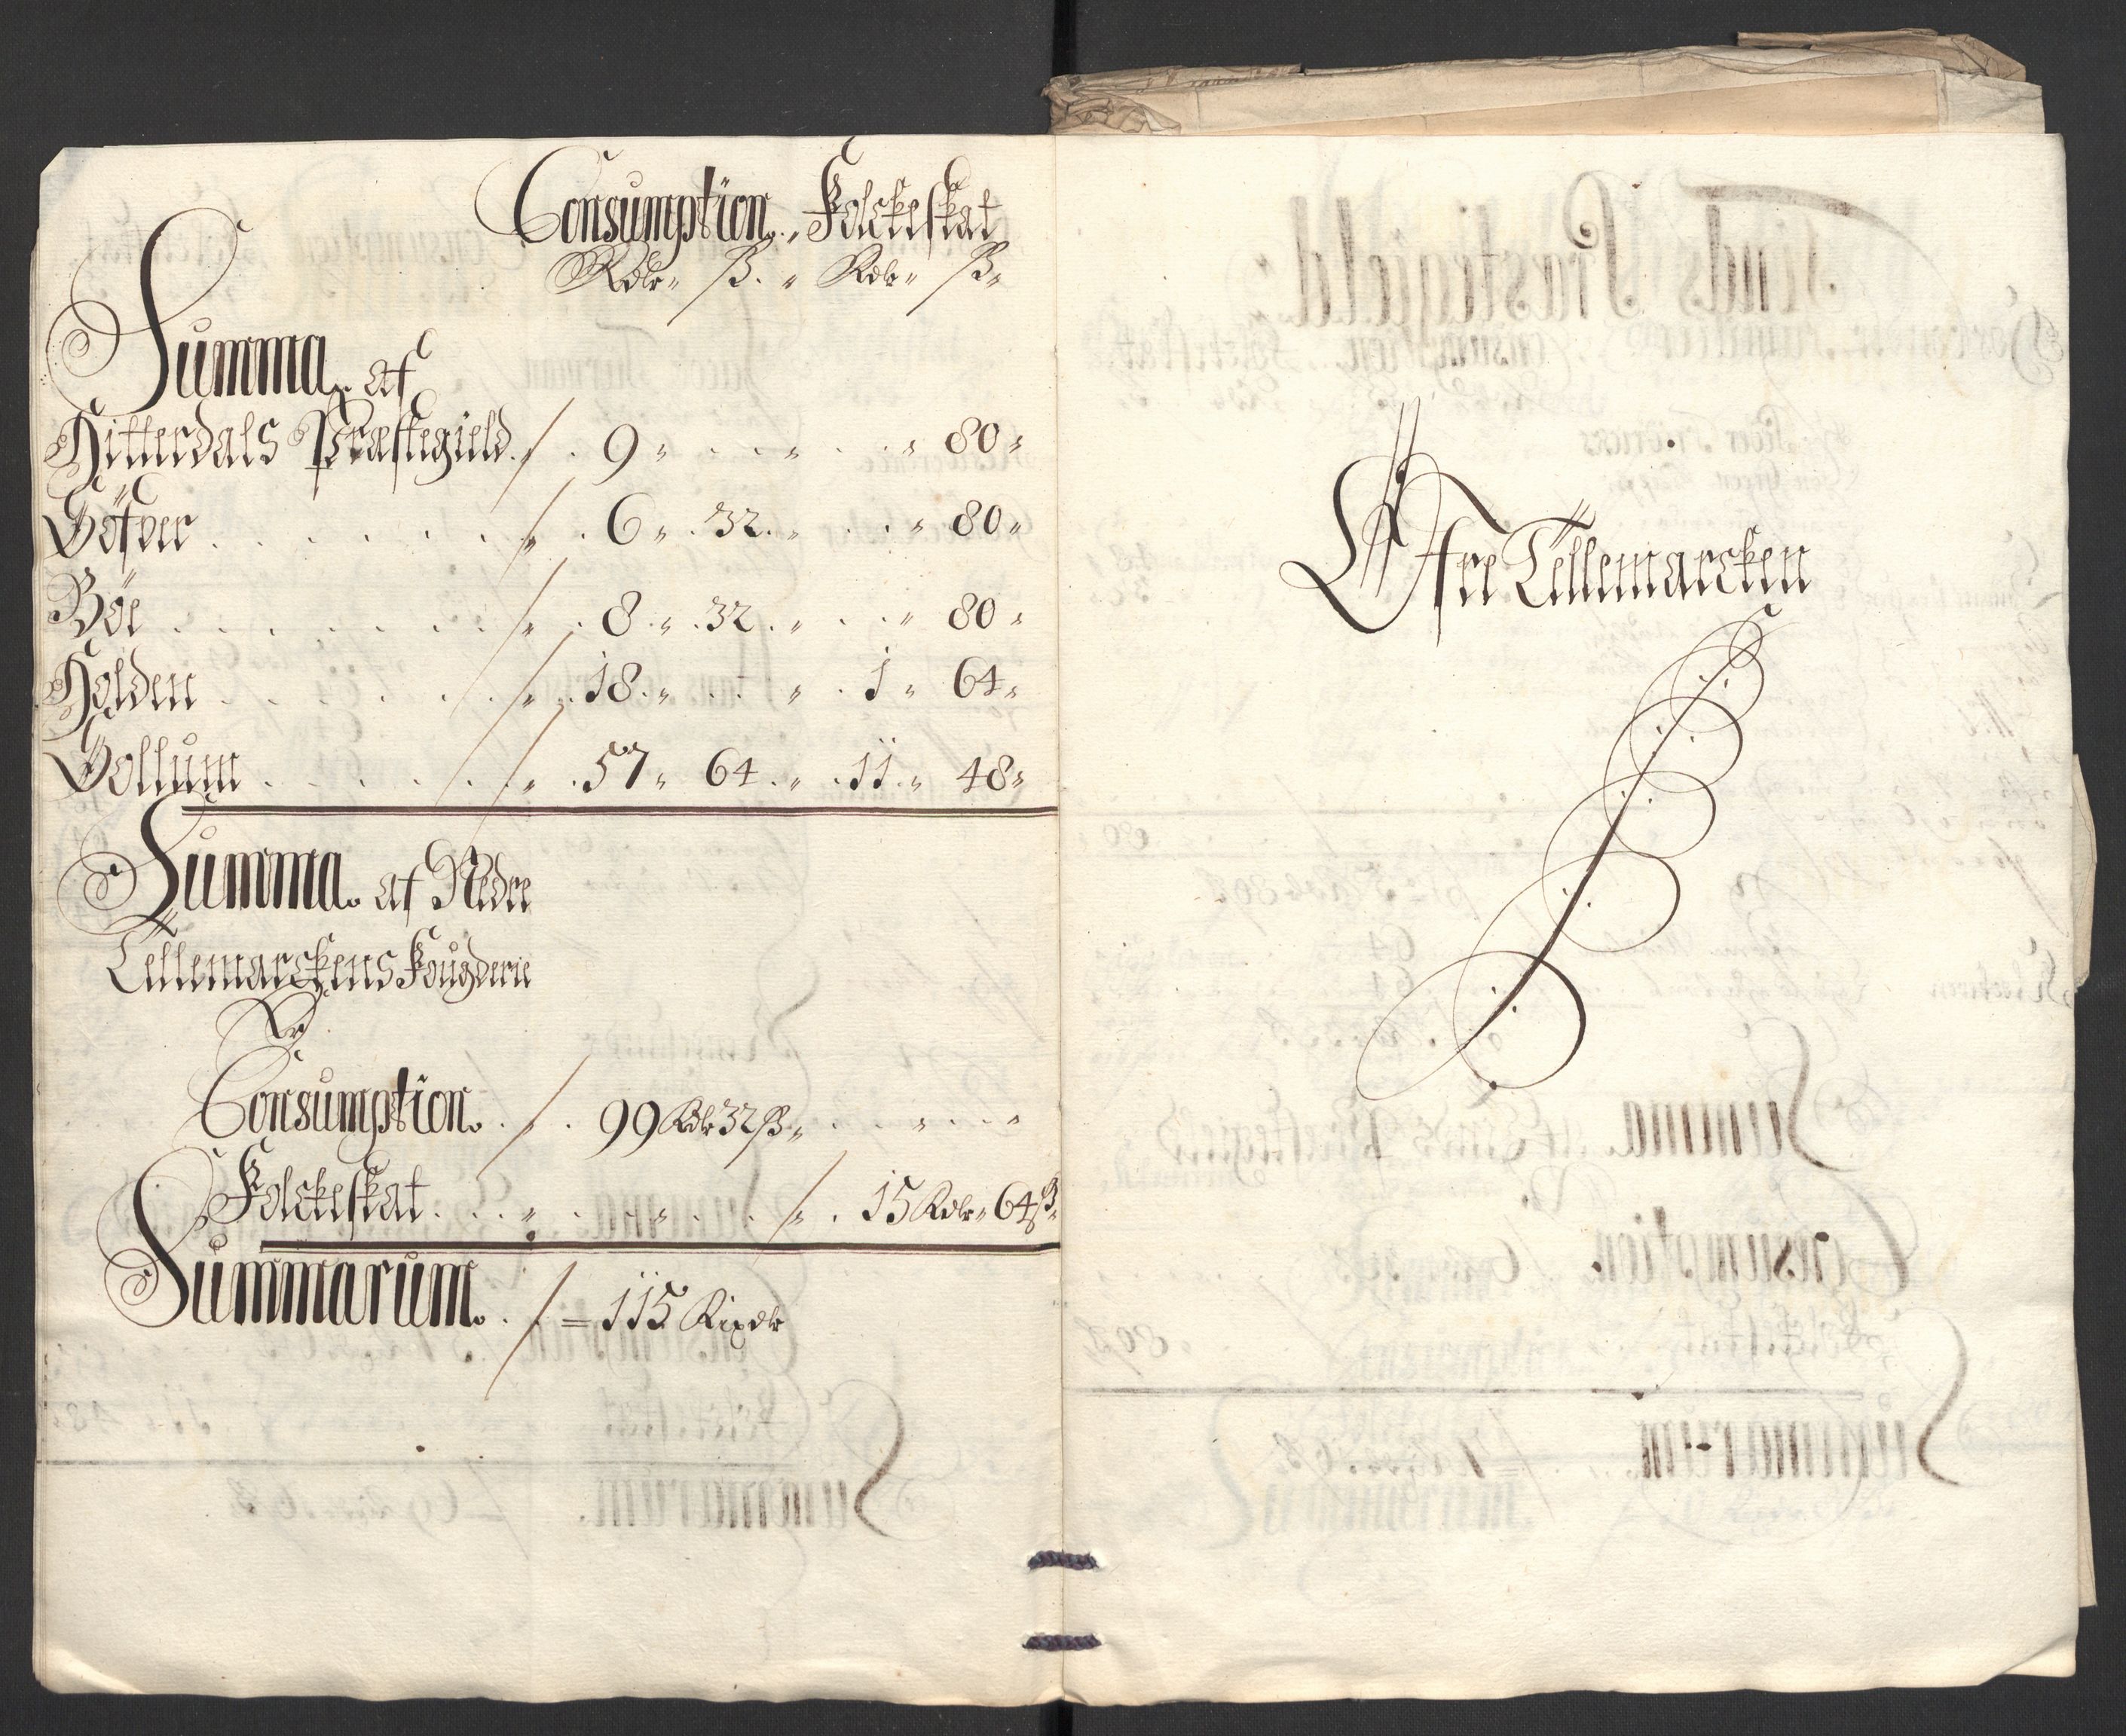 Consumption. Folckeskat
Rdlr ß. Rdlr ß.
Summa. af
Hitterdals Præstegield. 9 " " 80 "
Söfver 6 " 32 " " 80 "
Böe 8 " 32 " " 80 "
Holden 18 " " 1 " 64 "
Sollum 57 " 64 " 11 " 48 "
Summa. af Nedre
Tellemarckens Fougderie
Er
Consumption. 99 Rdlr 32 ß "
Folckeskat 15 Rdlr 64 ß
Summarum. = 115 Rixdlr
Öfre Tellemarcken